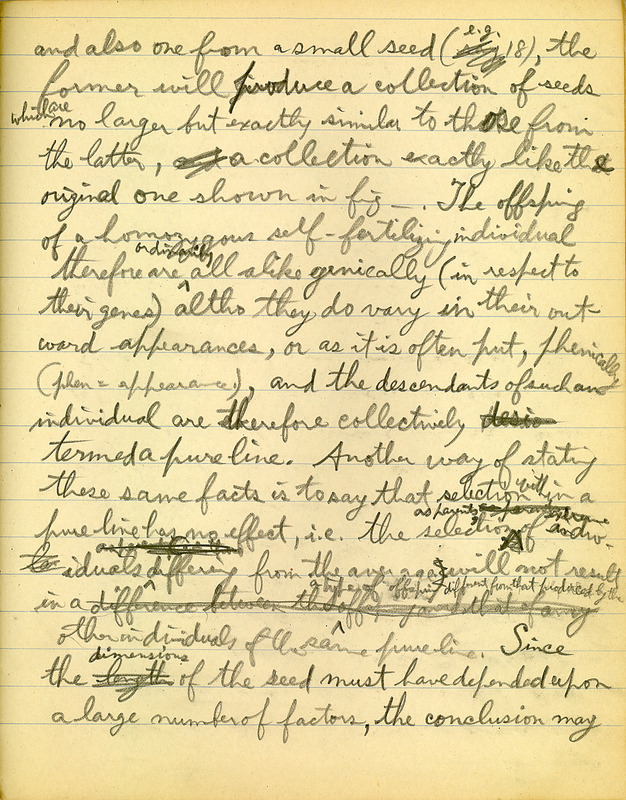 and also one from a small seed (e.g. 18), the
former will produce a collection of seeds
which are no larger but exactly similar to those from
the latter, a collection exactly like the
original one shown in fig —. The offspring
of a homozygous self-fertilizing individual
therefore are ordinarily all alike genically (in respect to
their genes) altho they do vary in their out-
ward appearances, or as it is often put, phenically
(phen = appearance), and the descendants of such an
individual are therefore collectively
termed a pure line. Another way of stating
these same facts is to say that selection within a
pure line has no effect, i.e. the selection as parents of indiv-
iduals differing from the average will not result
in a type of offspring different from that produced by the
other individuals of the same pure line. Since
the dimensions of the seed must have depended upon
a large number of factors, the conclusion may